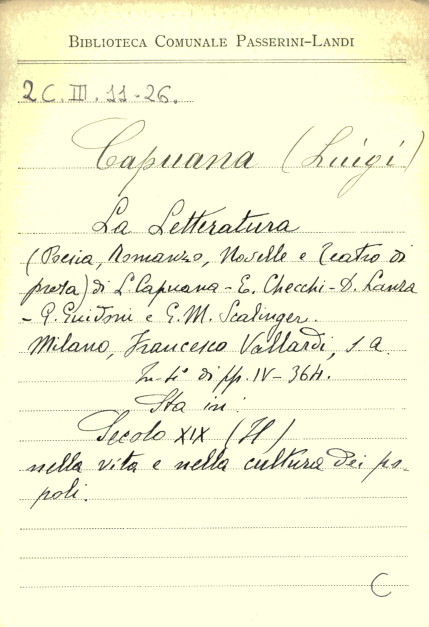 BIBLIOTECA COMUNALE PASSERINI-LANDI
2C. III. 11-26.
Capuana (Luigi)
La Letteratura
(Poesia, Romanzo, Novelle e Teatro di
prosa) di L. Capuana - E. Checchi - D. Lanza
- P. Guidoni e G. M. Scalinger.
Milano, Francesco Vallardi, s. a.
In-4° di pp. IV-364.
Sta in:
Secolo XIX (Il)
nella vita e nella cultura dei po-
poli.
C